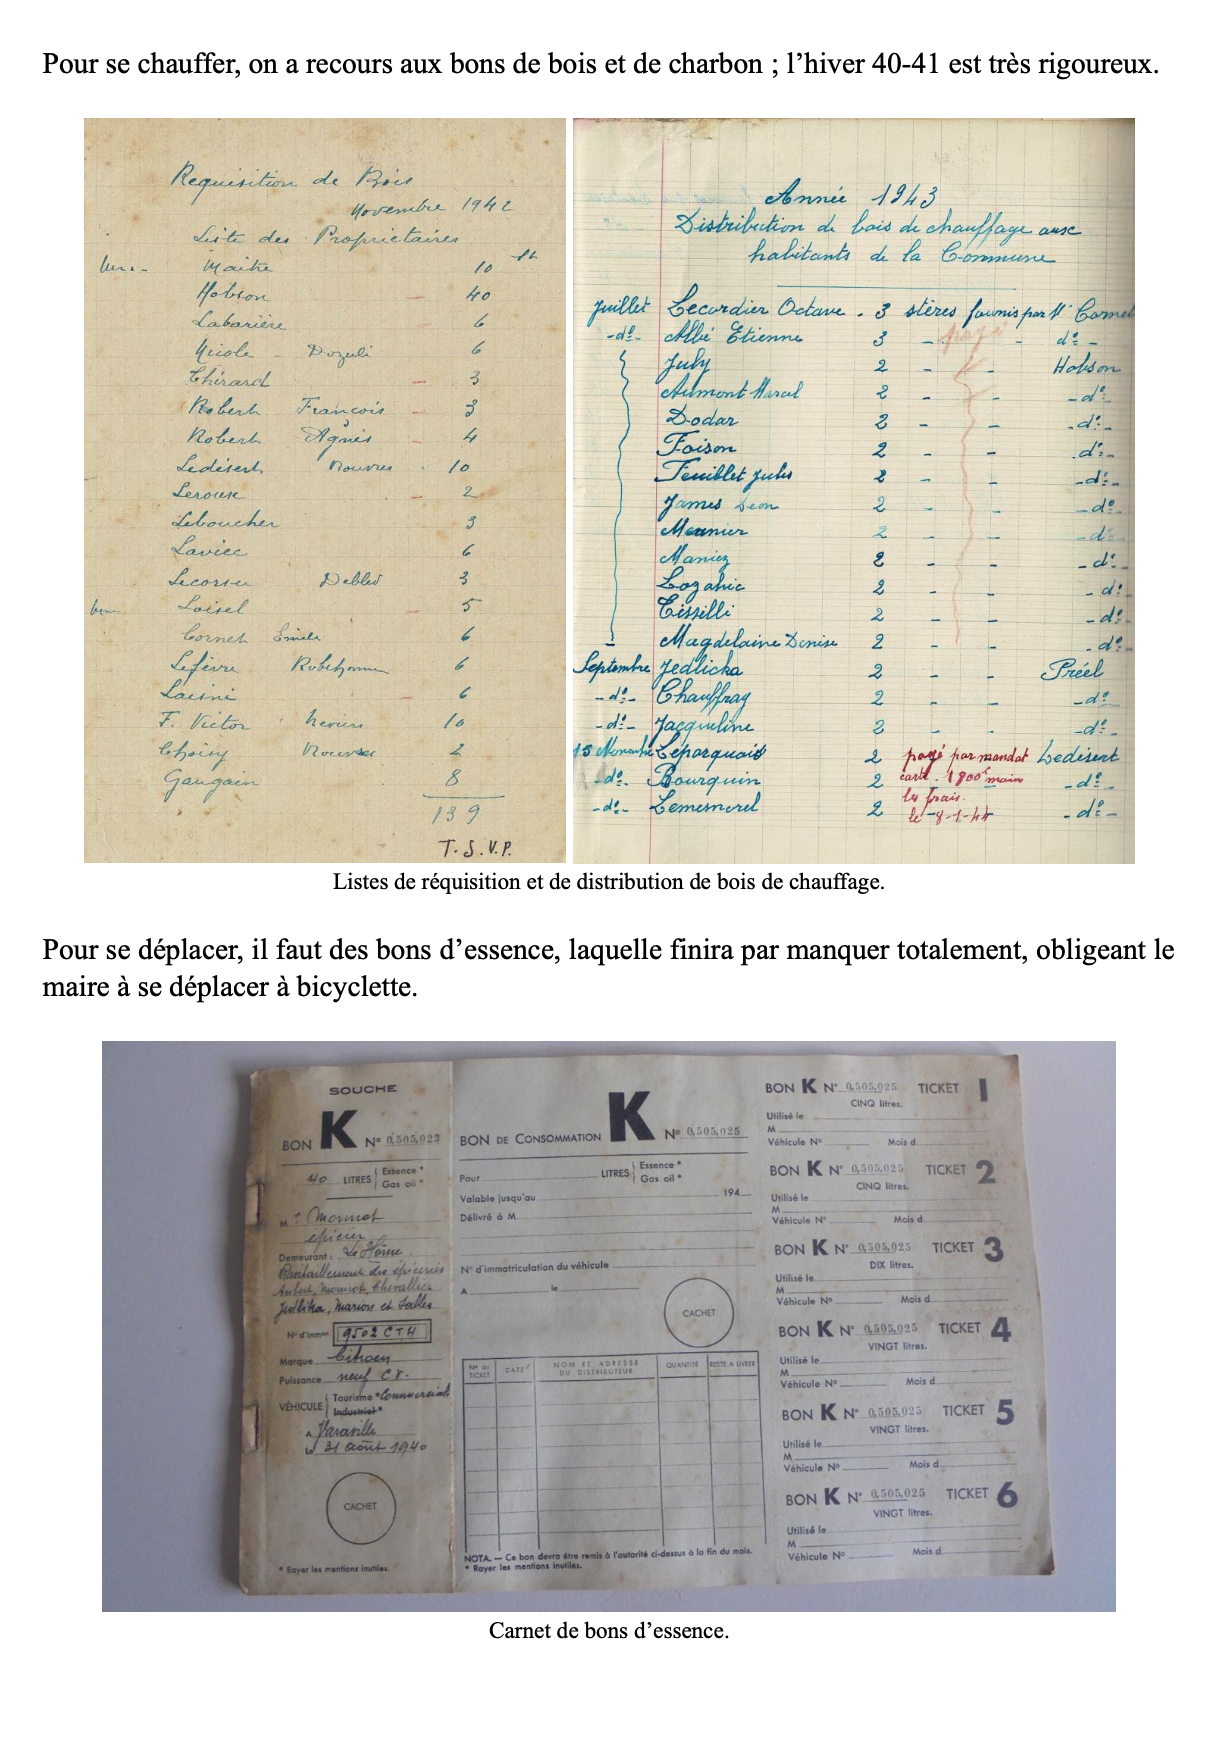 Pour se chauffer, on a recours aux bons de bois et de charbon ; l’hiver 40-41 est très rigoureux.
Requisition de Bois
Novembre 1942
Liste des Propriétaires
Maitre 10 st
Hobson — 40
Labarière — 6
Nicole - Dozulé 6
Thirard — 3
Robert François — 3
Robert Agnès — 4
Ledésert Rouvres 10
Leroux — 2
Leboucher 3
Laviec 6
Lecorsu Debled 3
Loisel — 5
Cornet Emile 6
Lefèvre Robehomme 6
Laisné — 6
F. Victor 10
Choisy Rouvres 2
Gaugain 8
139
T.S.V.P.
Année 1943
Distribution de bois de chauffage aux
habitants de la Commune
Juillet Lecordier Octave . 3 stères fournis par Mr Cornet
-do- Allié Etienne 3 - payé - do -
July 2 - - Hobson
Aumont Marcel 2 - - -do-
Dodar 2 - - -do-
Foison 2 - - -do-
Feuillet Jules 2 - - -do-
James Léon 2 - - -do-
Meunier 2 - - -do-
Maniez 2 - - -do-
Lozahic 2 - - -do-
Tisselli 2 - - -do-
Magdelaine Denise 2 - - -do-
Septembre Jedlicka 2 - - Préel
-do- Chauffray 2 - - -do-
-do- Jacqueline 2 - - -do-
15 Novembre Léparquois 2 payé par mandat Ledésert
-do- Bourquin 2 carte 1800f moins -do-
-do- Lemesnorel 2 les frais. -do-
le 8-1-44
Listes de réquisition et de distribution de bois de chauffage.
Pour se déplacer, il faut des bons d’essence, laquelle finira par manquer totalement, obligeant le
maire à se déplacer à bicyclette.
SOUCHE
BON K N° 0,505,023
40 LITRES Essence *
Gas oil *
M r Monnot
épicier
Demeurant : Le Hôme
Ravitaillement des épiceries
Aubert, Monnot, Chevallier
Jedlika, Marion et Salles
N° d'imm on 9502 CT4
Marque Citroën
Puissance neuf CV.
VÉHICULE Tourisme * Commercial
Industriel *
A Varaville
Le 31 août 1940
CACHET
* Rayer les mentions inutiles.
BON DE CONSOMMATION K N° 0,505,025
Pour LITRES Essence *
Gas oil *
Valable jusqu'au 194
Délivré à M
N° d'immatriculation du véhicule
A le
CACHET
N° du TICKET DATE NOM ET ADRESSE DU DISTRIBUTEUR QUANTITÉ RESTE A LIVRER
NOTA. — Ce bon devra être remis à l'autorité ci-dessus à la fin du mois.
* Rayer les mentions inutiles.
BON K N° 0,505,025 TICKET 1
CINQ litres.
Utilisé le
M
Véhicule N° Mois d
BON K N° 0,505,025 TICKET 2
CINQ litres.
Utilisé le
M
Véhicule N° Mois d
BON K N° 0,505,025 TICKET 3
DIX litres.
Utilisé le
M
Véhicule N° Mois d
BON K N° 0,505,025 TICKET 4
VINGT litres.
Utilisé le
M
Véhicule N° Mois d
BON K N° 0,505,025 TICKET 5
VINGT litres.
Utilisé le
M
Véhicule N° Mois d
BON K N° 0,505,025 TICKET 6
VINGT litres.
Utilisé le
M
Véhicule N° Mois d
Carnet de bons d’essence.